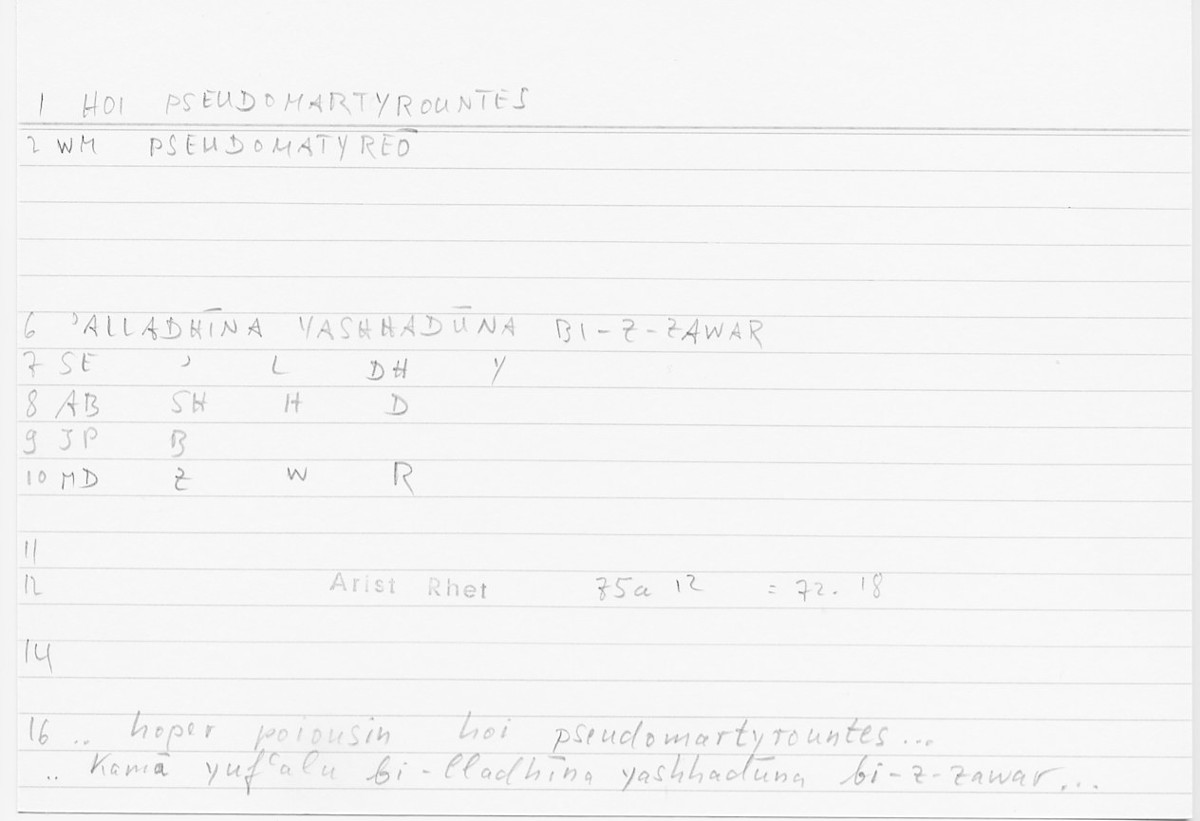 1 HOI PSEUDOMARTYROUNTES
2 WM PSEUDOMATYREŌ
6 ʾALLADHĪNA YASHHADŪNA BI-Z-ZAWAR
7 SE ʾ L DH Y
8 AB SH H D
9 JP B
10 MD Z W R
11
12 Arist Rhet 75a 12 = 72. 18
14
16 .. hoper poiousin hoi pseudomartyrountes...
.. Kamā yufʿalu bi-lladhīna yashhadūna bi-z-zawar...